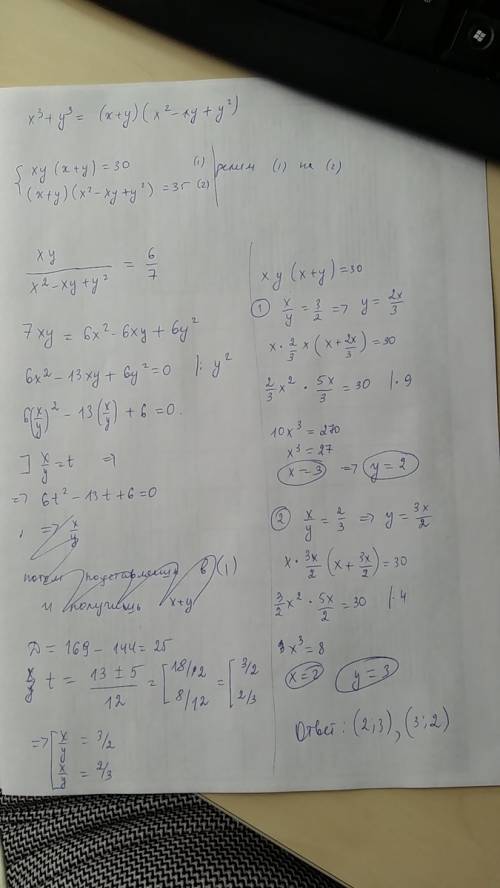 x³ + y³ = (x+y)(x² - xy + y²)
{ xy (x+y) = 30 (1) | делим (1) на (2)
(x+y)(x² - xy + y²) = 35 (2)
xy / (x² - xy + y²) = 6/7
7xy = 6x² - 6xy + 6y²
6x² - 13xy + 6y² = 0 |: y²
6(x/y)² - 13(x/y) + 6 = 0.
] x/y = t ⇒
⇒ 6t² - 13t + 6 = 0
⇒ x/y
потом подставляешь в (1)
и получишь x+y
D = 169 - 144 = 25
t = (13 ± 5)/12 = [ 18/12 8/12 = [ 3/2 2/3
⇒ [ x/y = 3/2
x/y = 2/3
xy (x+y) = 30
① x/y = 3/2 ⇒ y = 2x/3
x · 2/3 x (x + 2x/3) = 30
2/3 x² · 5x/3 = 30 |· 9
10x³ = 270
x³ = 27
x = 3 ⇒ y = 2
② x/y = 2/3 ⇒ y = 3x/2
x · 3x/2 (x + 3x/2) = 30
3/2 x² · 5x/2 = 30 |· 4
x³ = 8
x = 2 y = 3
Ответ: (2;3), (3;2)